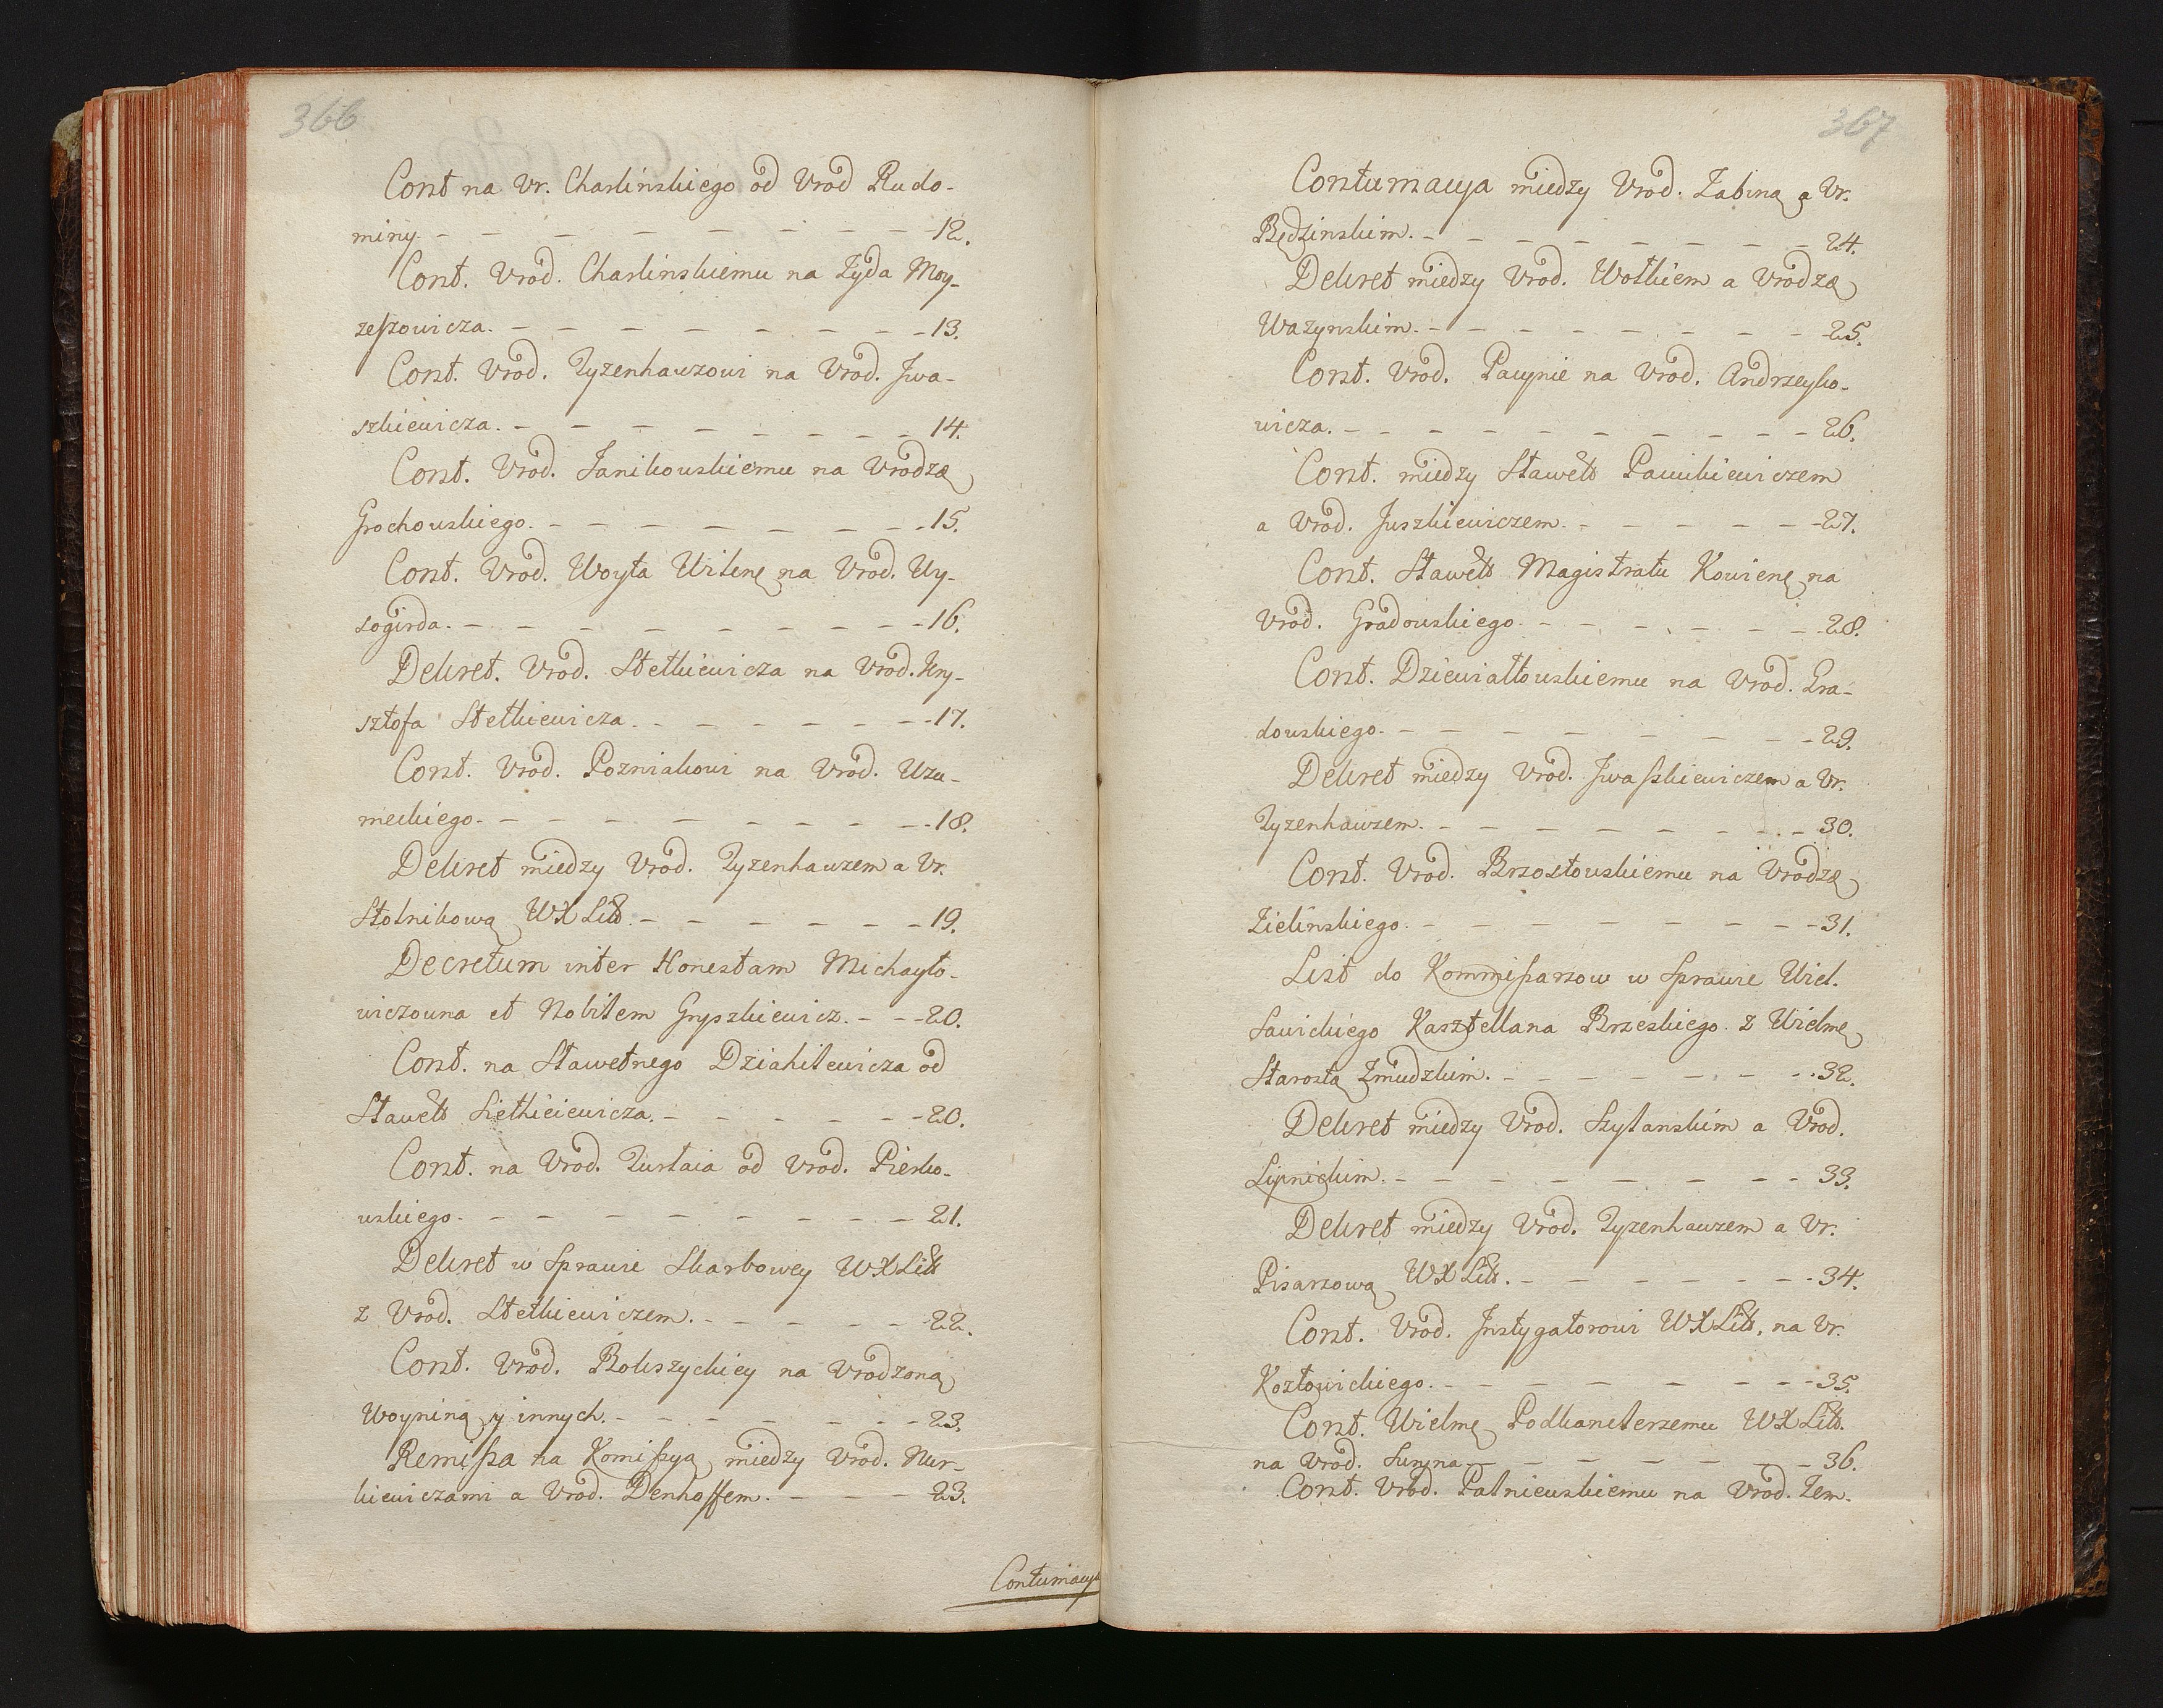 366
Cont na Ur. Charlińskiego od Urod Rudo-
miny. - - - - - - - - 12.
Cont. Urod. Charlińskiemu na Żyda Moy-
zeszowicza. - - - - - - - - 13.
Cont. Urod. Tyzenhauzowi na Urod. Iwa-
szkiewicza. - - - - - - - - 14.
Cont. Urod. Janikowskiemu na Urodzę
Grochowskiego. - - - - - - - - 15.
Cont. Urod. Woyta Wilenę na Urod. Wy-
sogirda. - - - - - - - - 16.
Dekret. Urod. Stetkiewicza na Urod. Kry-
sztofa Stetkiewicza. - - - - - - - 17.
Cont. Urod. Pozniakowi na Urod. Uzu-
meckiego. - - - - - - - - 18.
Dekret między Urod. Tyzenhauzem a Ur.
Stolnikową WXLitt. - - - - - - 19.
Decretum inter Honestam Michayło-
wiczowna et Nobilem Gryszkiewicz. - - - 20.
Cont. na Sławetnego Dziahilewicza od
Sławett Sietkieiewicza. - - - - - - 20.
Cont. na Urod. Turłaia od Urod. Pierko-
wskiego. - - - - - - - - 21.
Dekret w Sprawie Skarbowey WXLitt
z Urod. Stetkiewiczem. - - - - - - 22.
Cont. Urod. Bokszyckiey na Urodzoną
Woyniną y innych. - - - - - - 23.
Remissa na Komissyą między Urod. Nur-
kiewiczami a Urod. Denhoffem. - - - - 23.
Contumacya
367
Contumacya między Urod. Zabiną a Ur.
Będzinskim. - - - - - - - - 24.
Dekret między Urod. Wołkiem a Urodzę
Wazynskim. - - - - - - - - 25.
Cont. Urod. Pacynie na Urod. Andrzeyko-
wicza. - - - - - - - - - 26.
Cont. między Sławett Pawilkiewiczem
a Urod. Juszkiewiczem. - - - - - - 27.
Cont. Sławett Magistratu Kowienę na
Urod. Gradowskiego. - - - - - - 28.
Cont. Dziewiałtowskiemu na Urod. Gra-
dowskiego. - - - - - - - - 29.
Dekret między Urod. Iwaszkiewiczem a Ur.
Tyzenhauzem. - - - - - - - - 30.
Cont. Urod. Brzostowskiemu na Urodzę
Zielińskiego. - - - - - - - - 31.
List do Kommissarzow w Sprawie Wiel.
Sawickiego Kasztellana Brzeskiego z Wielmę
Starostą Żmudzkim. - - - - - - 32.
Dekret między Urod. Szylanskim a Urod.
Lipnickim. - - - - - - - - 33.
Dekret między Urod. Tyzenhauzem a Ur.
Pisarzową WXLitt. - - - - - - 34.
Cont. Urod. Instygatorowi WXLitt. na Ur.
Kozłowickiego. - - - - - - - 35.
Cont. Wielmę Podkanclerzemu WXLitt.
na Urod. Suryna - - - - - - - 36.
Cont. Urod. Palniewskiemu na Urod. Zem-